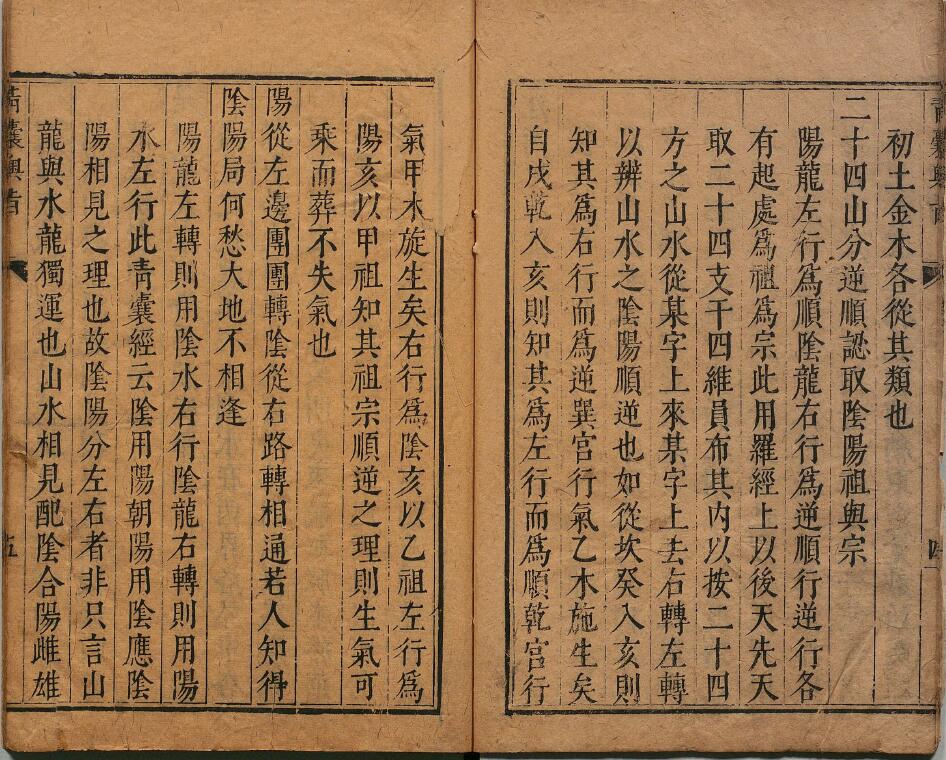 初土金木各從其類也
二十四山分逆順認取陰陽祖與宗
陽龍左行爲順陰龍右行爲逆順行逆行各
有起處爲祖爲宗此用羅經上以後天先天
取二十四支干四維員布其内以按二十四
方之山水從某字上來某字上去右轉左轉
以辨山水之陰陽順逆也如從坎癸入亥則
知其爲右行而爲逆巽宫行氣乙木施生矣
自戌乾入亥則知其爲左行而爲順乾宫行
氣甲木旋生矣右行爲陰亥以乙祖左行爲
陽亥以甲祖知其祖宗順逆之理則生氣可
乘而葬不失氣也
陽從左邊團團轉陰從右路轉相通若人知得
陰陽局何愁大地不相逢
陽龍左轉則用陰水右行陰龍右轉則用陽
水左行此青囊經云陰用陽朝陽用陰應陰
陽相見之理也故陰陽分左右者非只言山
龍與水龍獨運也山水相見配陰合陽雌雄
五